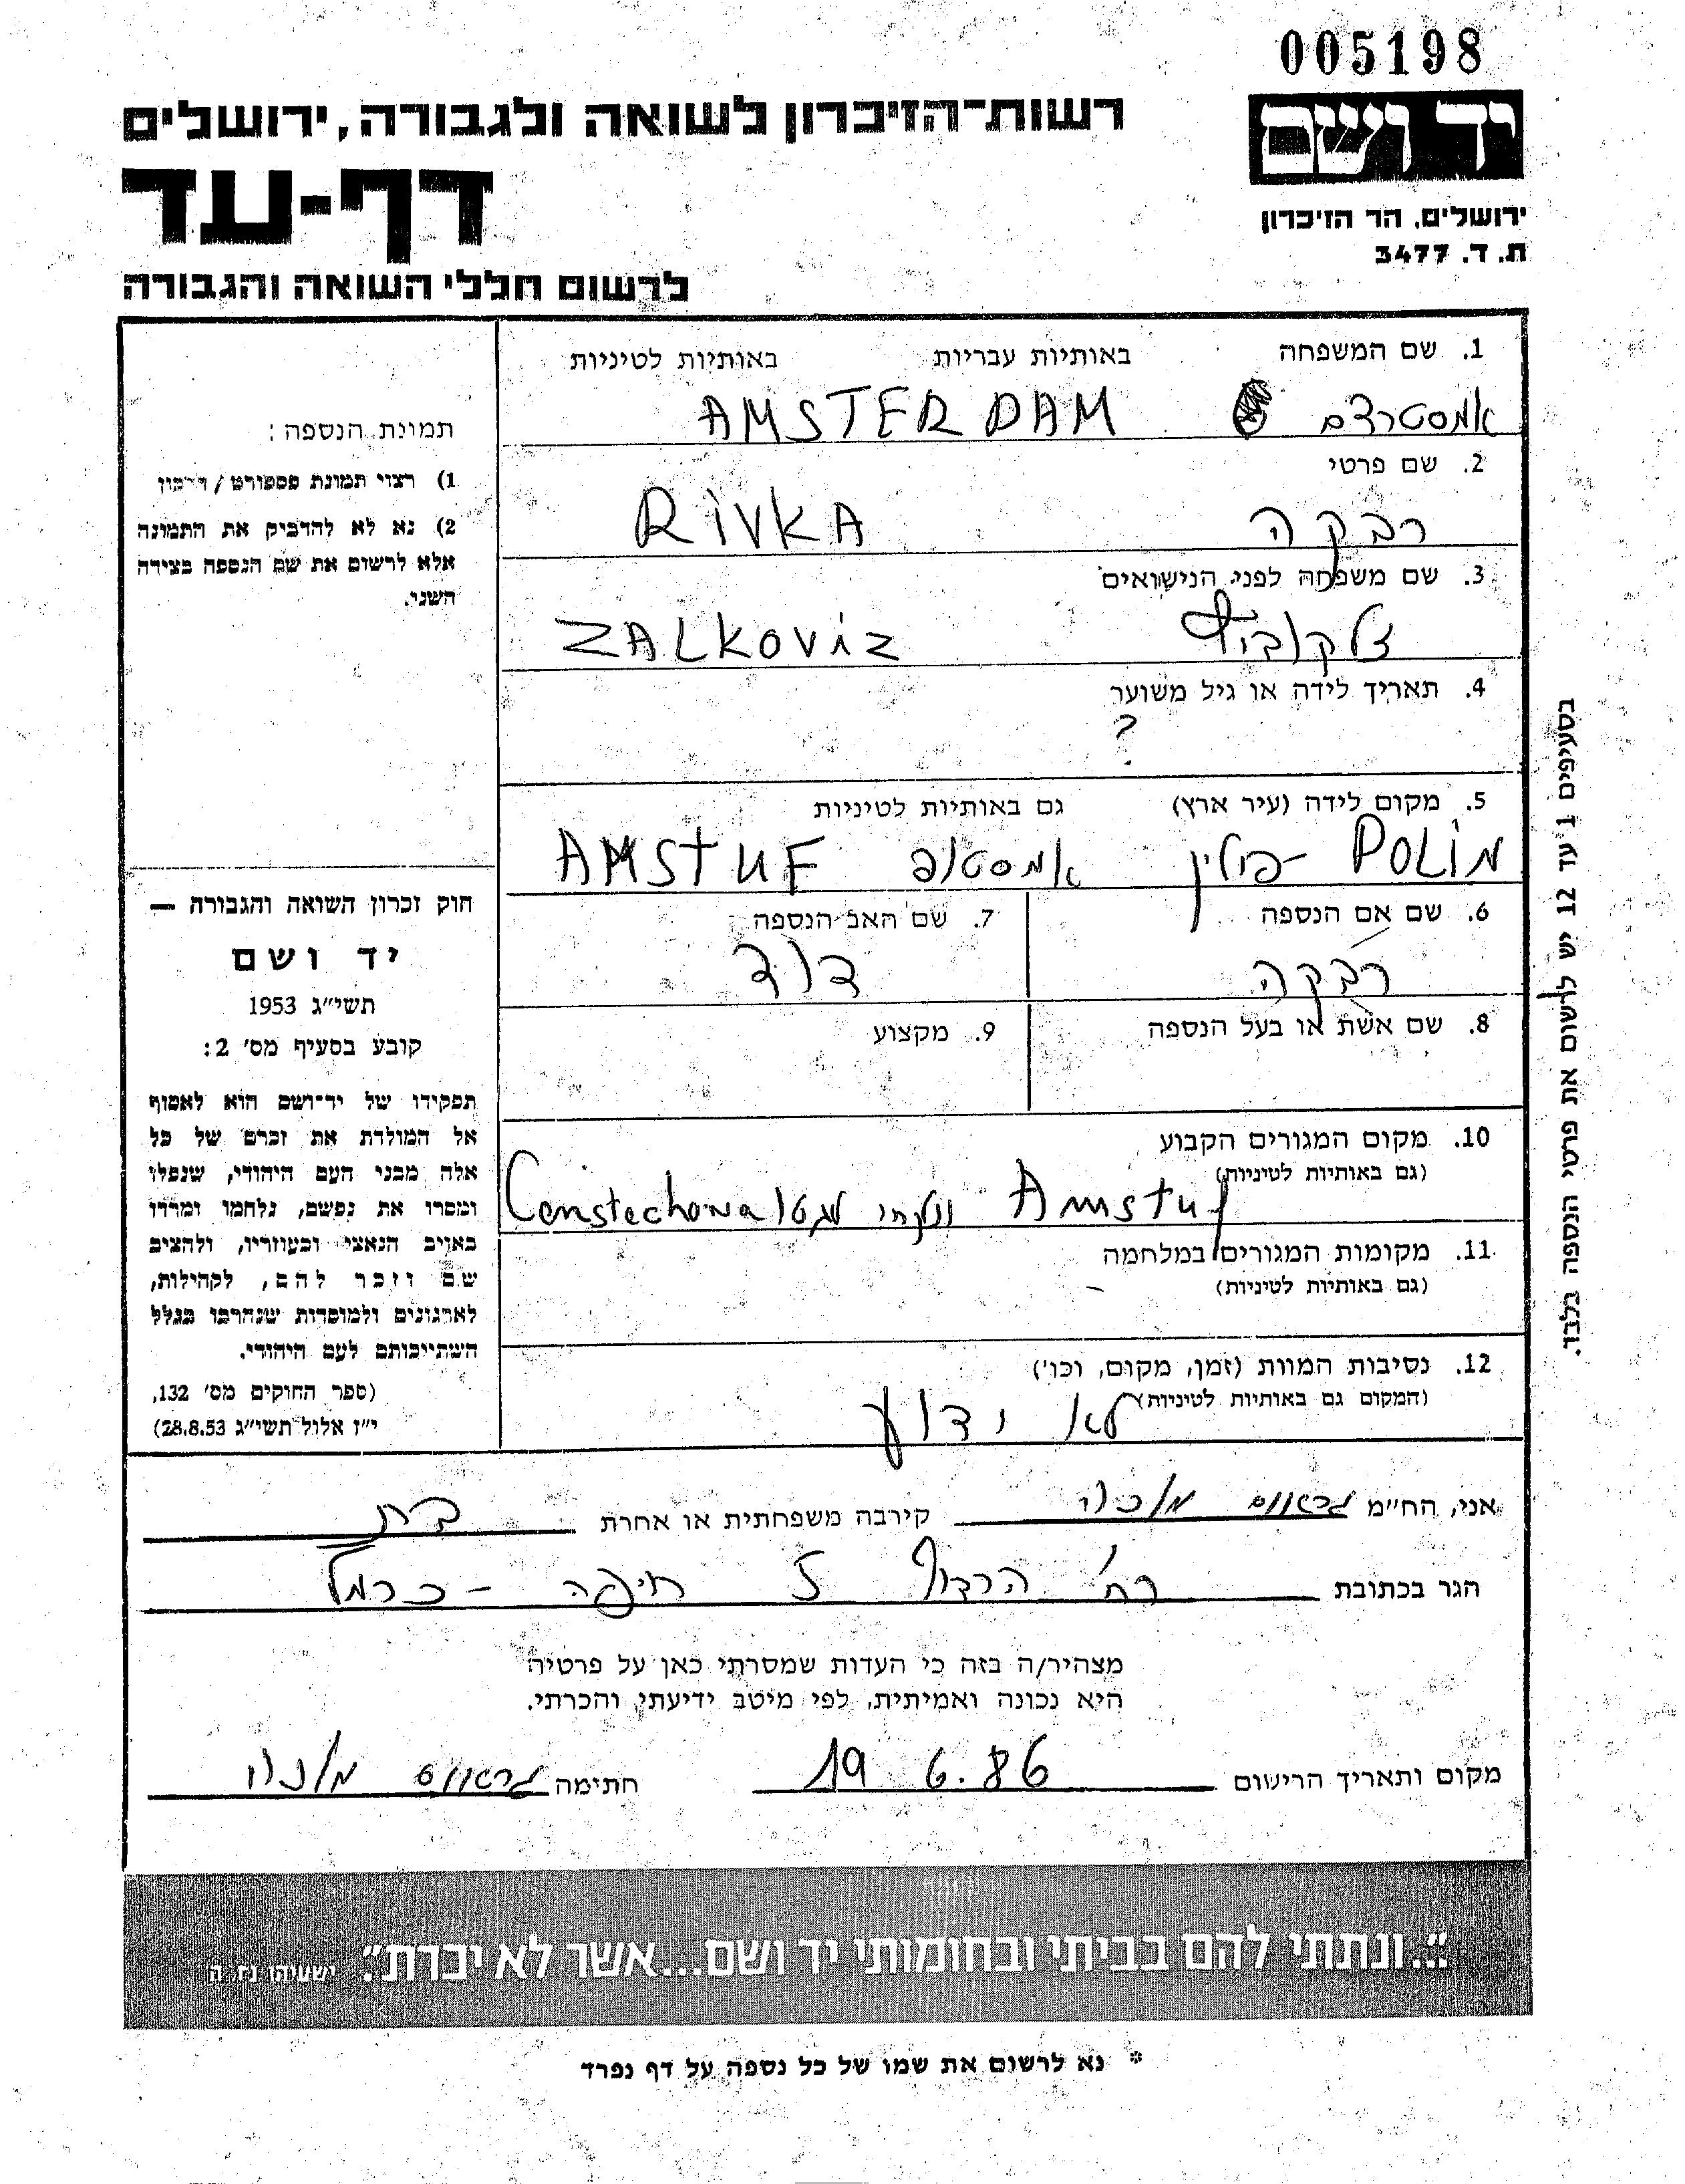 005198
יד ושם
רשות־הזיכרון לשואה ולגבורה, ירושלים
דף-עד
לרשום חללי השואה והגבורה
ירושלים, הר הזיכרון
ת. ד. 3477
1. שם המשפחה באותיות עבריות באותיות לטיניות
אמסטרדם AMSTERDAM
2. שם פרטי
רבקה RIVKA
3. שם משפחה לפני הנישואים
זלקוביץ ZALKOViZ
4. תאריך לידה או גיל משוער
?
5. מקום לידה (עיר ארץ) גם באותיות לטיניות
POLiN פולין אמסטוף AMStUF
6. שם אם הנספה 7. שם האב הנספה
רבקה דוד
8. שם אשת או בעל הנספה 9. מקצוע
10. מקום המגורים הקבוע
(גם באותיות לטיניות)
Amstuf ונלקחו לגטו Censtechowa
11. מקומות המגורים במלחמה
(גם באותיות לטיניות)
12. נסיבות המוות (זמן, מקום, וכו')
(המקום גם באותיות לטיניות)
לא ידוע
תמונת הנספה:
1) רצוי תמונת פספורט / דרכון
2) נא לא להדביק את התמונה
אלא לרשום את שם הנספה בצידה
השני.
חוק זכרון השואה והגבורה —
יד ושם
תשי״ג 1953
קובע בסעיף מס׳ 2:
תפקידו של יד־ושם הוא לאסוף
אל המולדת את זכרם של כל
אלה מבני העם היהודי, שנפלו
ומסרו את נפשם, נלחמו ומרדו
באויב הנאצי ובעוזריו, ולהציב
שם וזכר להם, לקהילות,
לארגונים ולמוסדות שנחרבו בגלל
השתייכותם לעם היהודי.
(ספר החוקים מס׳ 132,
י״ז אלול תשי״ג 28.8.53)
בסעיפים 1 עד 12 יש לרשום את פרטי הנספה בלבד.
אני, הח״מ גראוס מלכה קירבה משפחתית או אחרת בת
הגר בכתובת רח׳ הרדוף 5 חיפה - כרמל
מצהיר/ה בזה כי העדות שמסרתי כאן על פרטיה
היא נכונה ואמיתית, לפי מיטב ידיעתי והכרתי.
מקום ותאריך הרישום 19 6.86 חתימה גראוס מלכה
״...ונתתי להם בביתי ובחומותי יד ושם...אשר לא יכרת״. ישעיהו נו, ה
* נא לרשום את שמו של כל נספה על דף נפרד